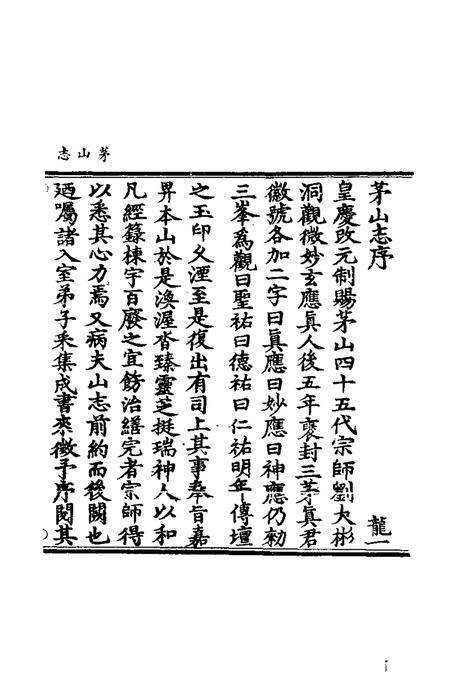 茅山志
茅山志序
龍一
皇慶改元制賜茅山四十五代宗師劉大彬
洞觀微妙玄應眞人後五年襃封三茅眞君
徽號各加二字曰眞應曰妙應曰神應仍勑
三峯爲觀曰聖祐曰德祐曰仁祐明年傳壇
之玉印久湮至是復出有司上其事奉旨嘉
畀本山於是渙渥沓臻靈芝挺瑞神人以和
凡經籙棟宇百廢之宜飭治繕完者宗師得
以悉其心力焉又病夫山志前約而後闕也
廼囑諸入室弟子采集成書來徵予序閱其